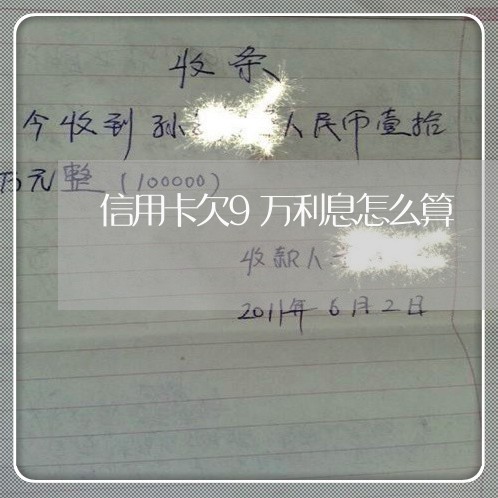 收条
今收到孙 人民币壹拾
万元整（100000）
信用卡欠9万利息怎么算
收款人
2011年6月2日